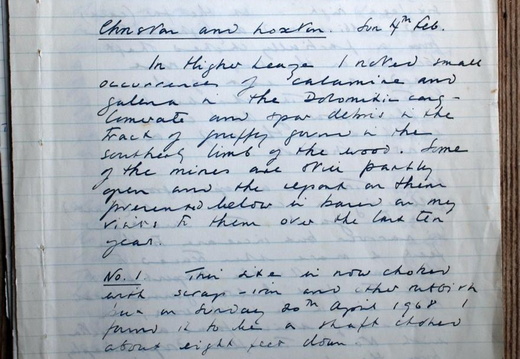 Christon and Loxton. Sun 4th Feb.
In Higher Leaze I noted small
occurrences of calamine and
galena in the Dolomitic cong-
lomerate and spar debris in the
track of gruffy ground in the
southerly limb of the wood. Some
of the mines are still partly
open and the report on them
presented below is based on my
visits to them over the last ten
years.
No. 1. This site is now choked
with scrap-iron and other rubbish
but on Sunday 20th April 1968 I
found it to be a shaft choked
about eight feet down